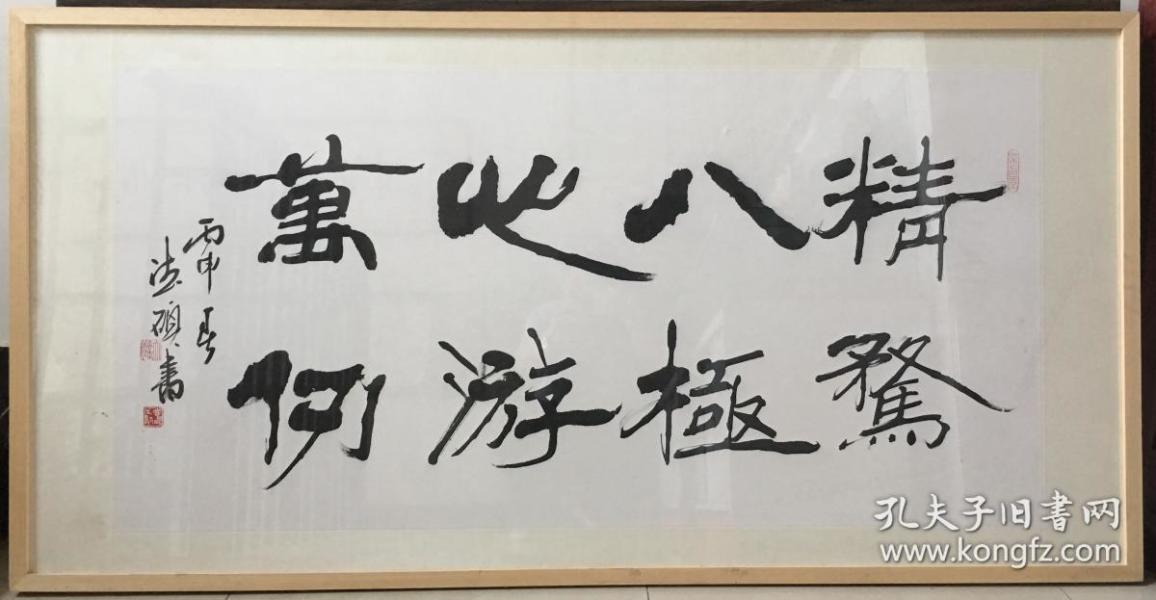 精騖
八極
心游
萬仞
丙申春
德碩書
孔夫子旧書网
www.kongfz.com